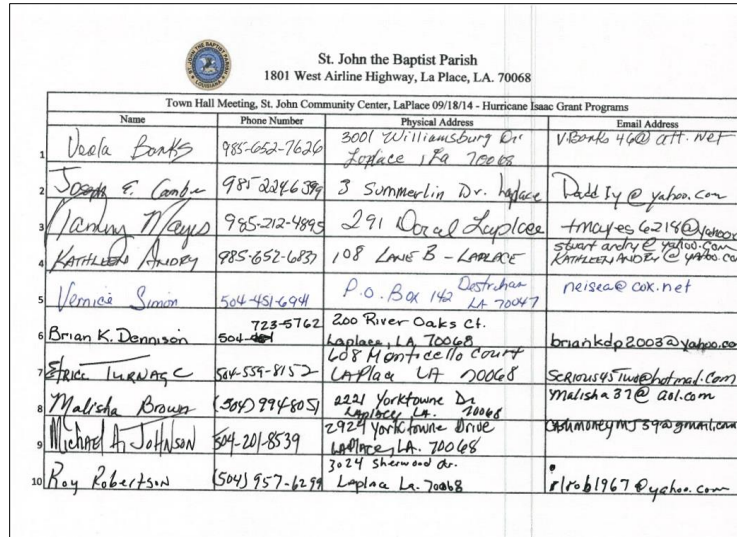 St. John the Baptist Parish
1801 West Airline Highway, La Place, LA. 70068
Town Hall Meeting, St. John Community Center, LaPlace 09/18/14 - Hurricane Isaac Grant Programs
Name Phone Number Physical Address Email Address
1 Banks 985-652-7626 3001 Williamsburg Dr Laplace, La 70068 V.Banks46@att.net
2 Joseph E. 985 2246399 3 Summerlin Dr. Laplace @yahoo.com
3 Mayes 985-212-4895 291 Doral Laplace tmayes6218@yahoo
4 KATHLEEN ANDRY 985-652-6837 108 LANE B - LAPLACE stuart andry@yahoo.com
KATHLEENANDRY@yahoo.co
5 Vernice Simon 504-451-6941 P.O. Box 142 Destrehan LA 70047 neisea@cox.net
6 Brian K. Dennison 504- 723-5762 200 River Oaks Ct. Laplace, LA 70068 briankdp2003@yahoo.co
7 504-559-8152 608 Monticello Court LAPlace LA 70068 @hotmail.com
8 Malisha Brown (504) 994-8051 2221 Yorktowne Dr Laplace LA. 70068 malisha37@aol.com
9 Michael A. Johnson 504-201-8539 2924 Yorktowne Drive LAPlace, LA. 70068 CASHMONEYMJ59@gmail.com
10 Roy Robertson (504) 957-6299 3024 Sherwood dr. Laplace La. 70068 rlrob1967@yahoo.com